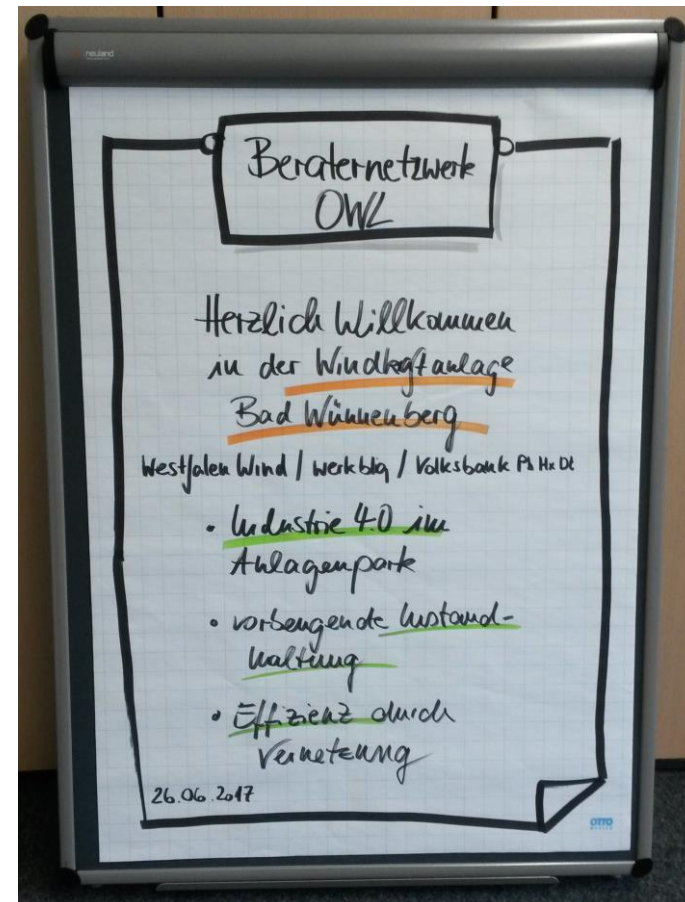 neuland
Beraternetzwerk
OWL
Herzlich Willkommen
in der Windkraftanlage
Bad Wünnenberg
Westfalen Wind / werkbliq / Volksbank PB Hx Dt
• Industrie 4.0 im
Anlagenpark
• vorbeugende Instand-
haltung
• Effizienz durch
Vernetzung
26.06.2017
OTTO